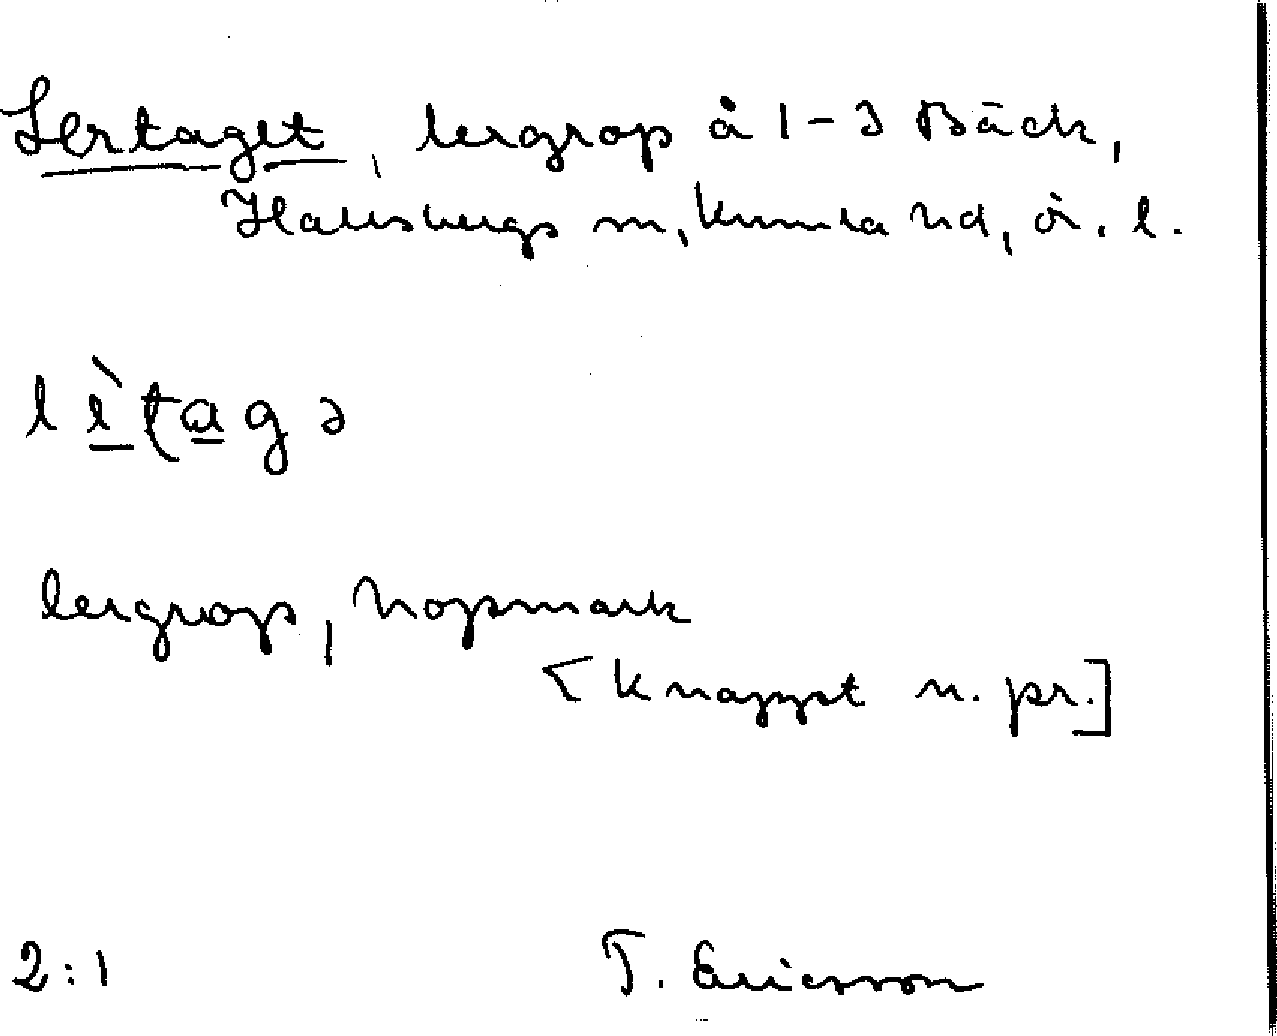 Lertaget, lergrop å 1-3 Bäck,
Hallsbergs sn, Kumla hd, ör. l.
lètagə
lergrop, hopmark
[Knappt n. pr.]
2:1
T. Ericsson